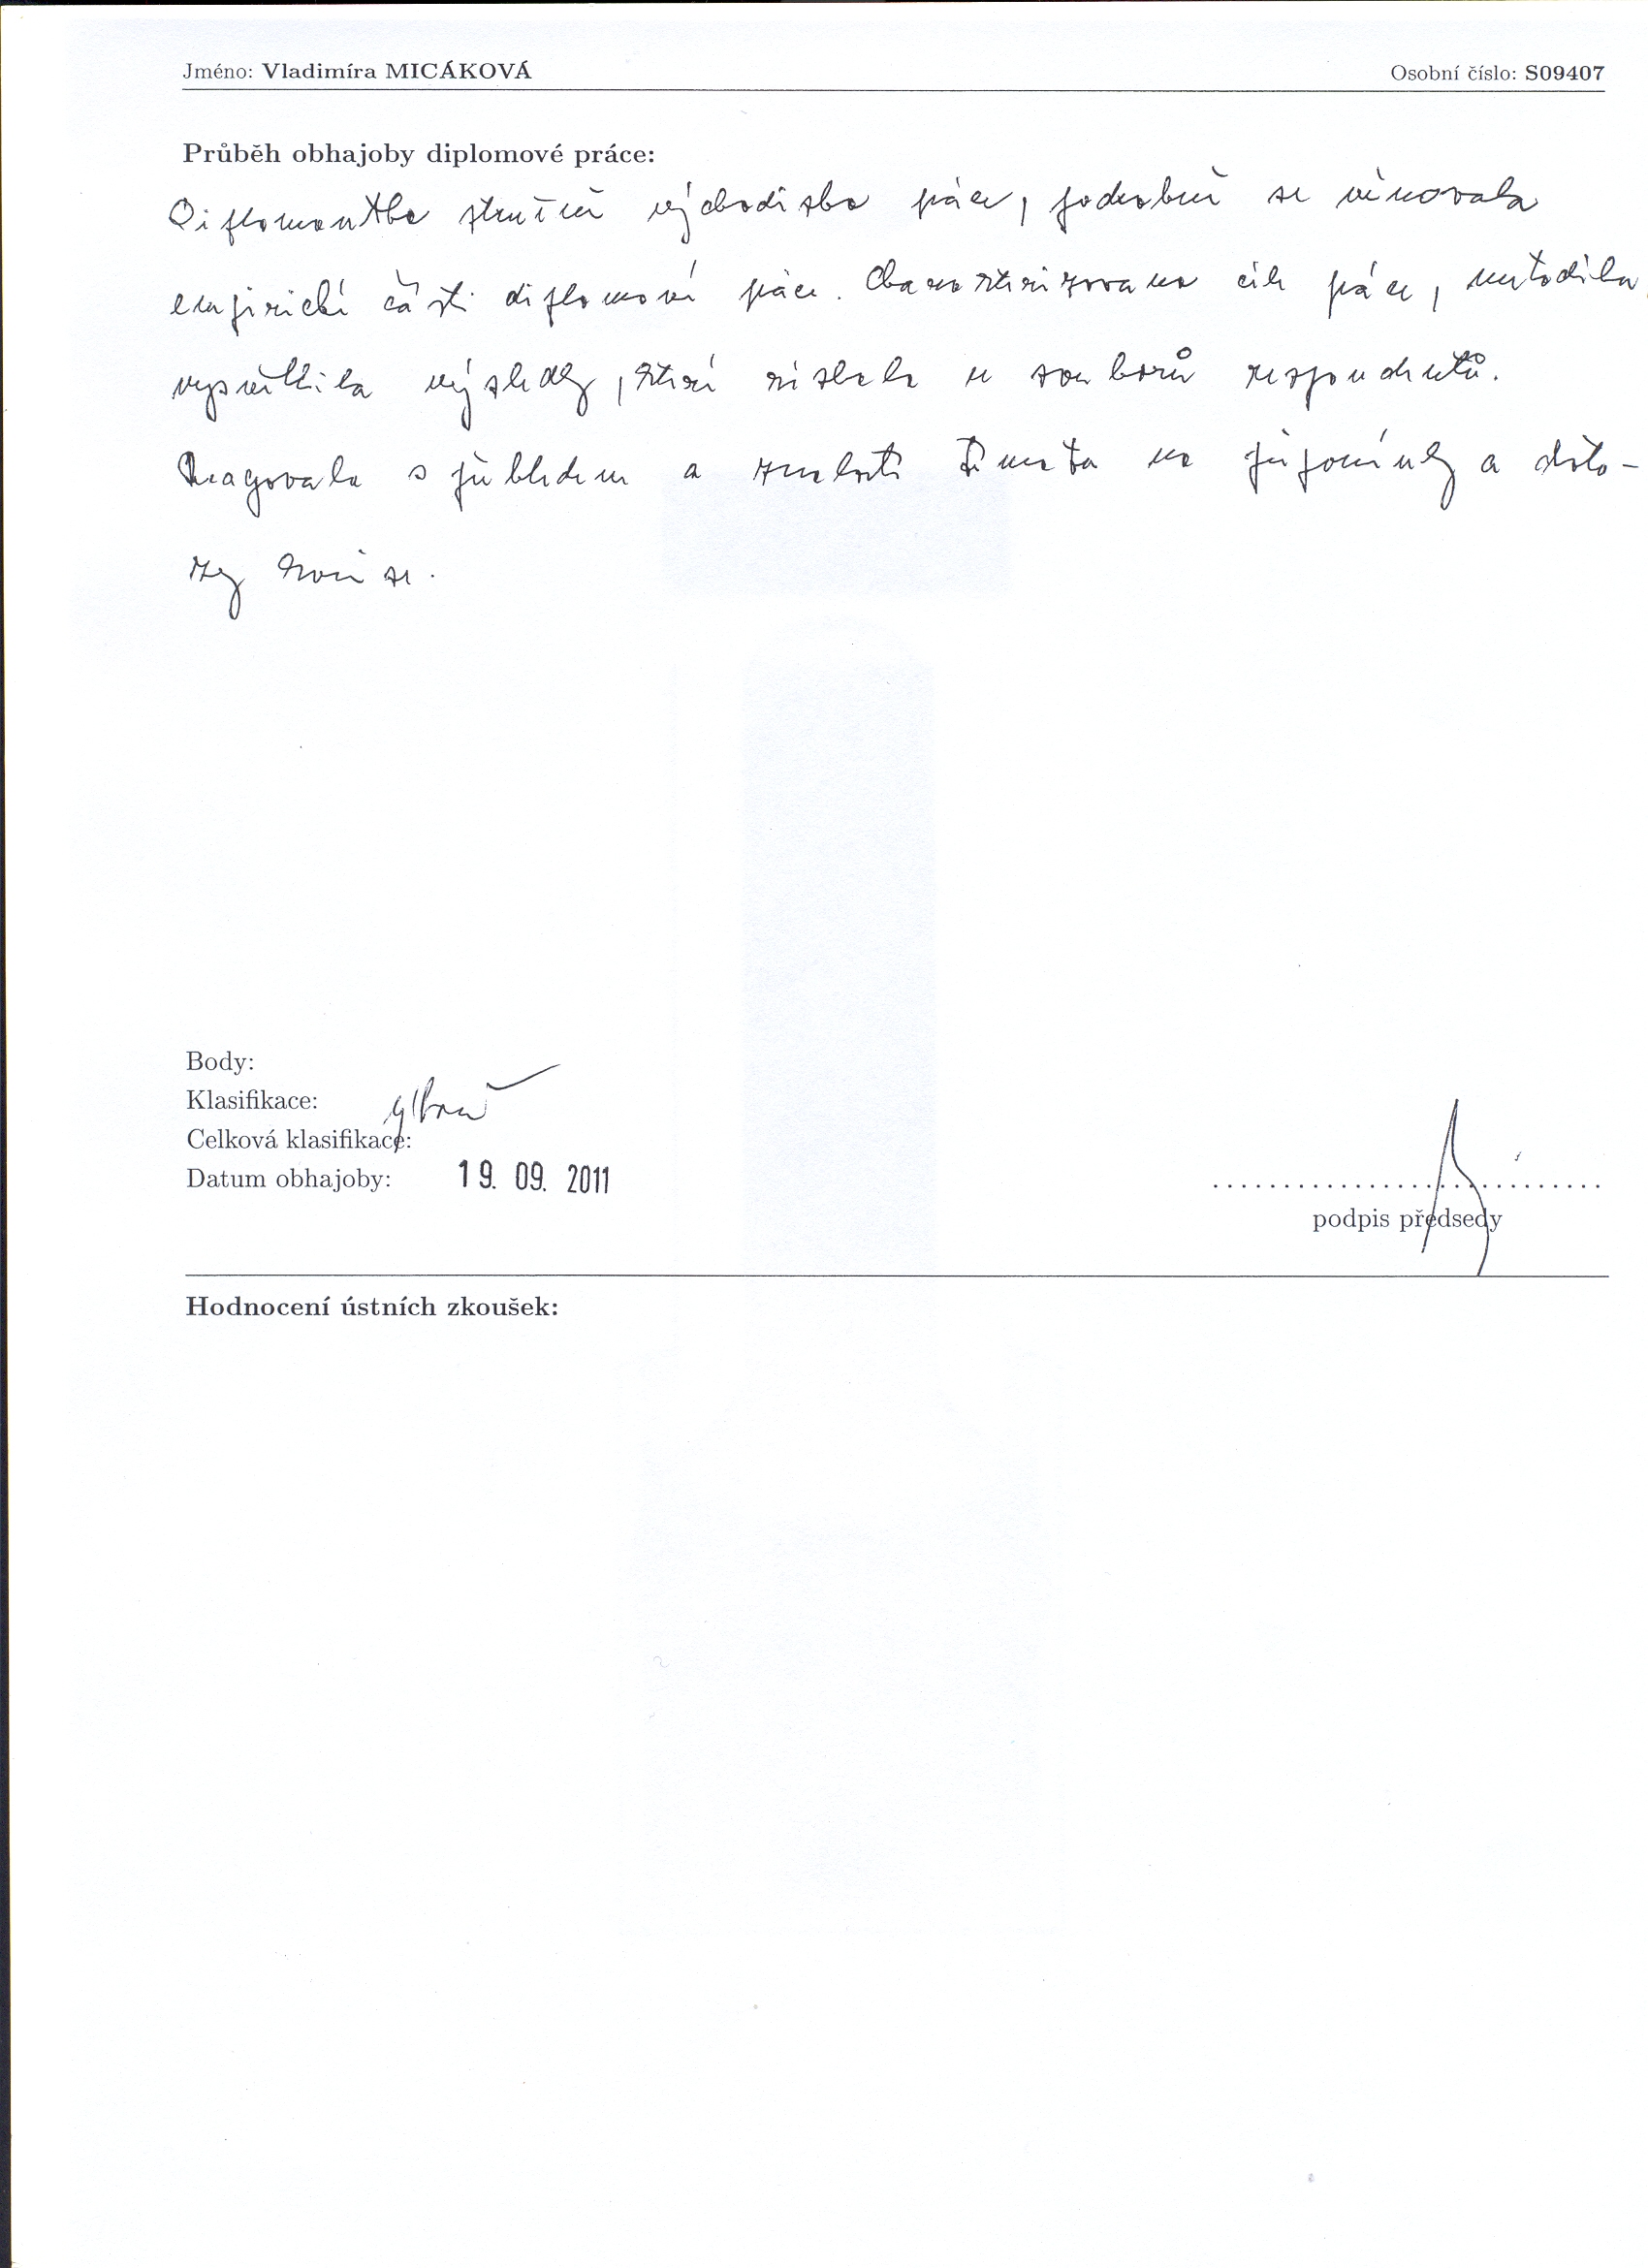 Jméno: Vladimíra MICÁKOVÁ Osobní číslo: S09407
Průběh obhajoby diplomové práce:
Diplomantka stručně východiska práce, podrobně se věnovala
empirické části diplomové práce. Charakterizovala cíle práce, metodiku,
vysvětlila výsledky, které získala u souborů respondentů.
Reagovala s přehledem a znalostí tématu na připomínky a dota-
zy komise.
Body:
Klasifikace: výborně
Celková klasifikace:
Datum obhajoby: 19. 09. 2011
podpis předsedy
Hodnocení ústních zkoušek: